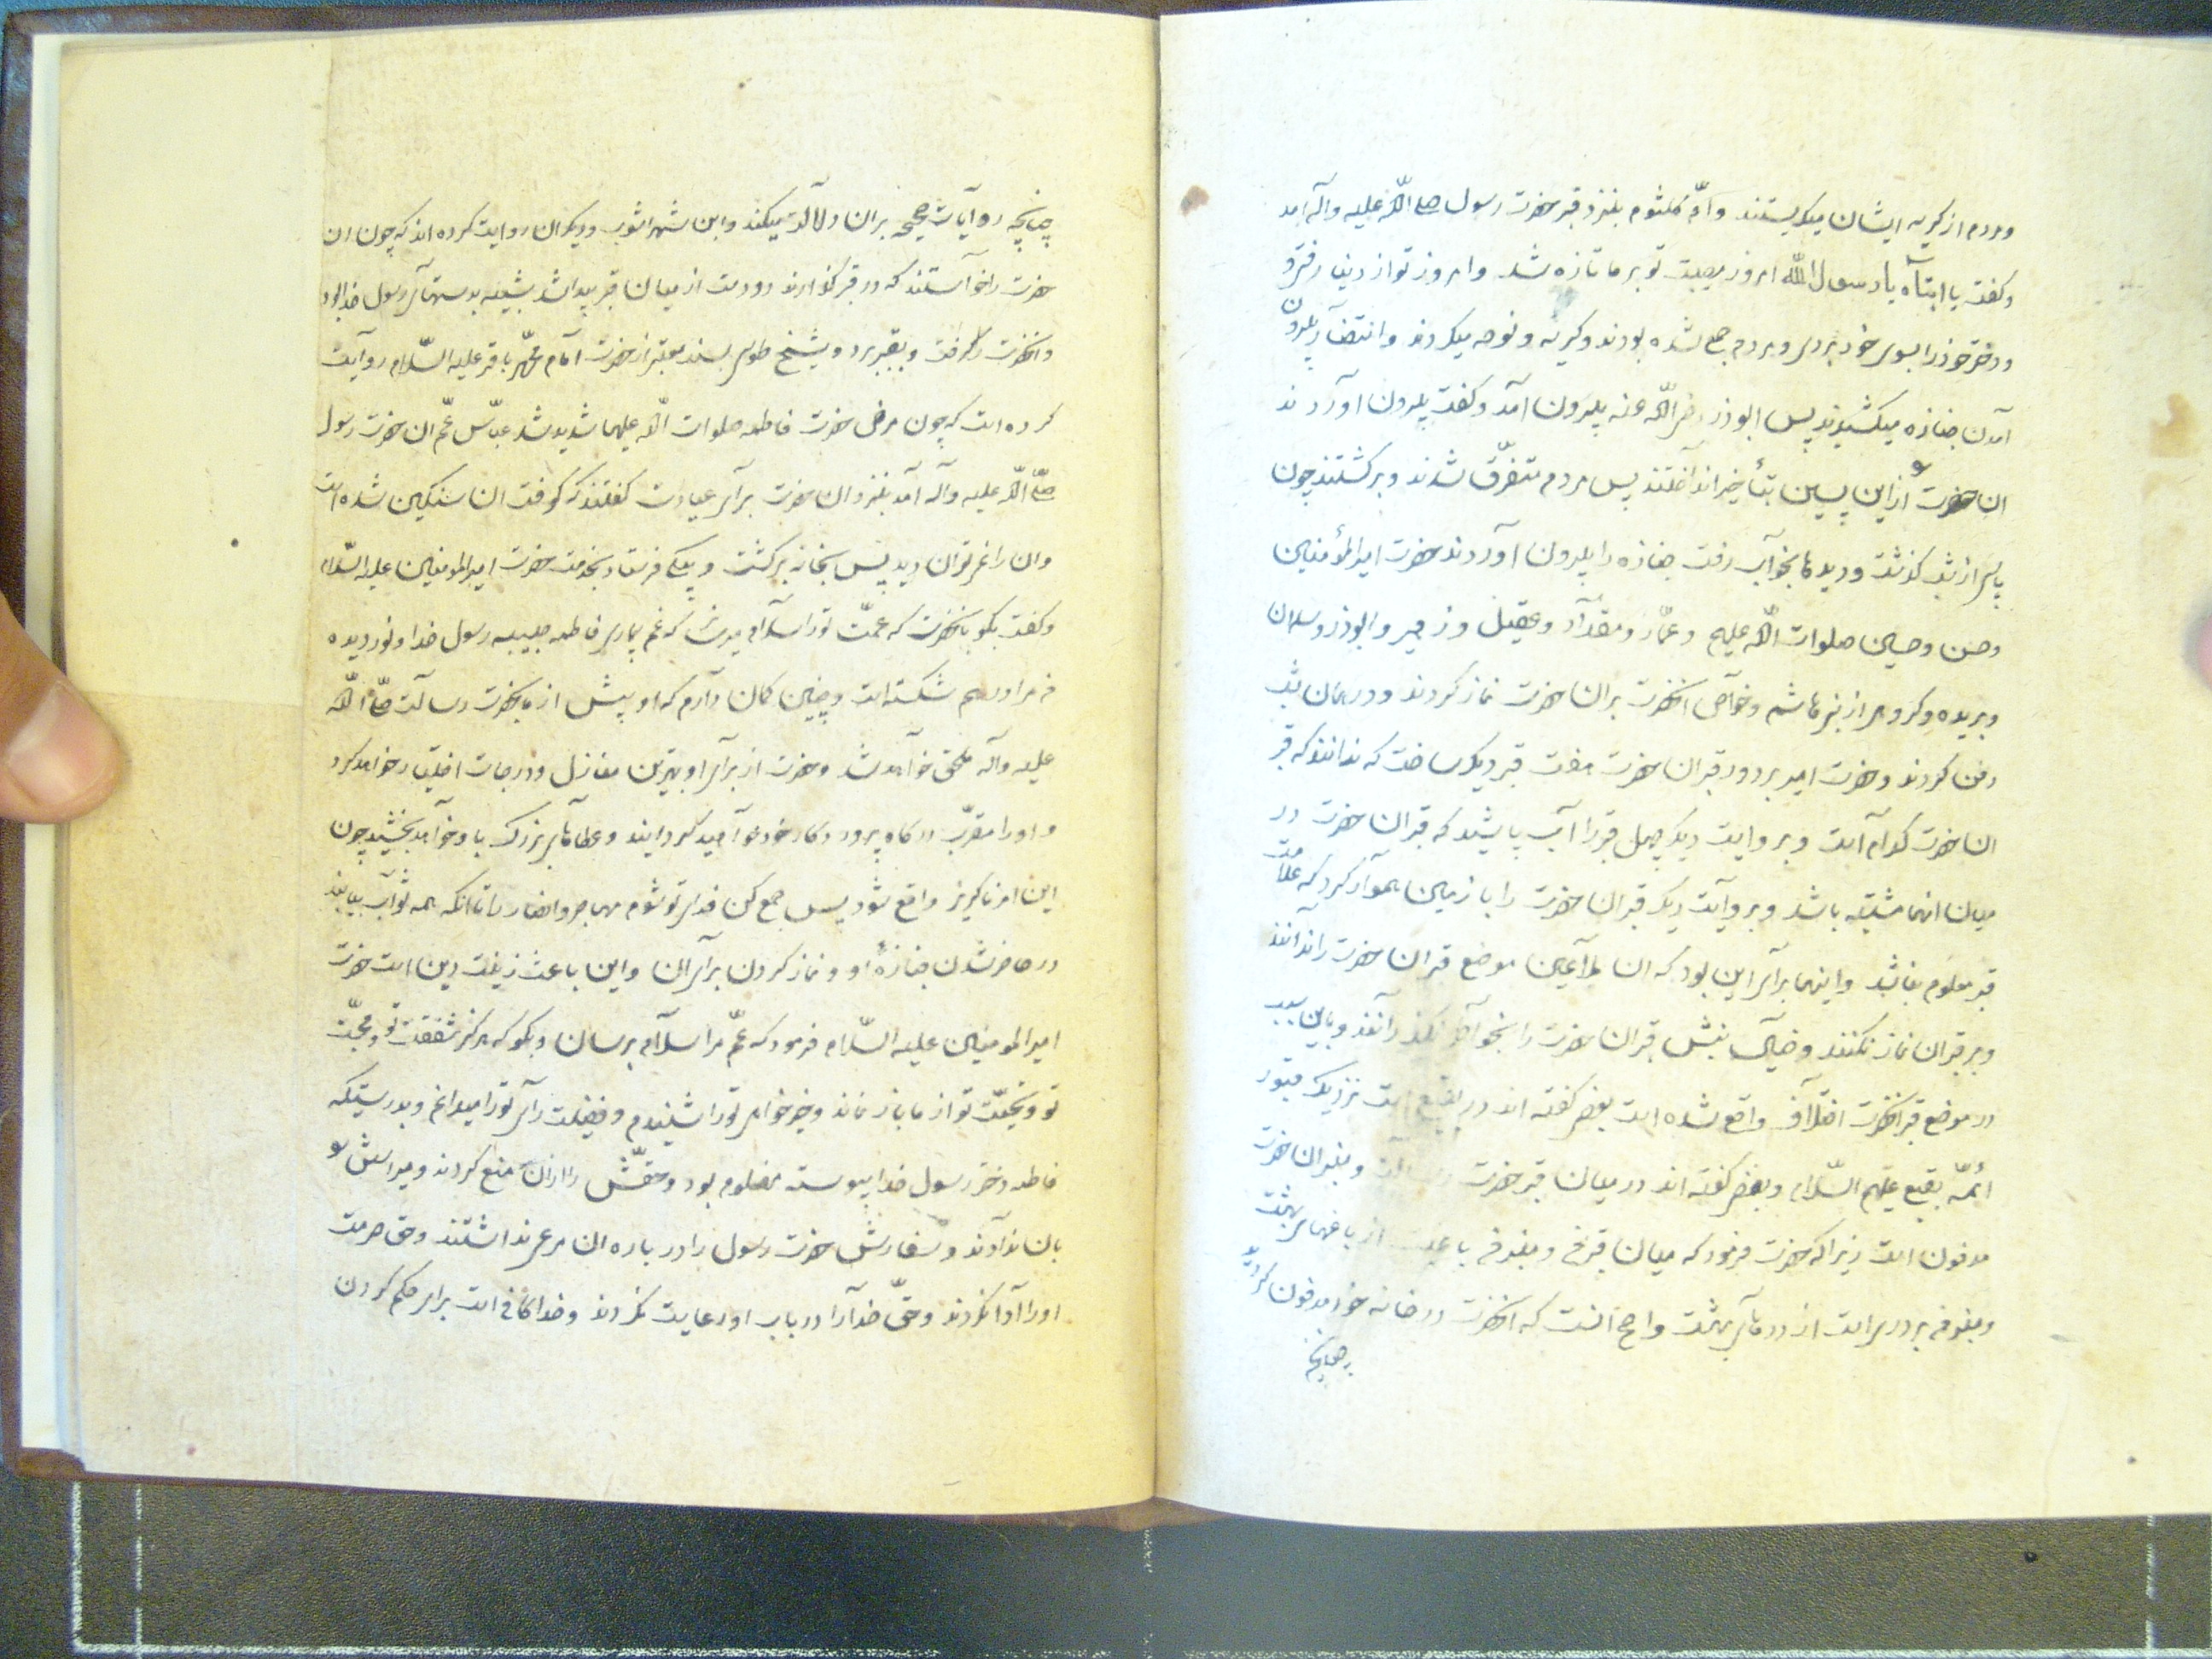 ومردم از کریه ایشان میکریستند وامّ کلثوم بنزد قبر حضرت رسول صلی اللّه علیه وآله آمد
وکفت یا ابتاه یا رسول اللّه امروز مصیبت تو بر ما تازه شد وامروز تو از دنیا رفتی
ودختر خود را بسوی خود بردی ومردم جمع شده بودند وکریه ونوحه میکردند وانتظار بیرون
آمدن جنازه میکشیدند پس ابوذر رضی اللّه عنه بیرون آمد وکفت بیرون آوردن
ان حضرت از این پسین بتأخیر انداختند پس مردم متفرّق شدند وبرکشتند چون
پاسی از شب کذشت ودیدها بخواب رفت جنازه را بیرون آوردند حضرت امیر المؤمنین
وحسن وحسین صلوات اللّه علیهم وعمّار ومقداد وعقیل وزبیر وابوذر وسلمان
وبریده وکروهی از بنی هاشم وخواص آنحضرت بران حضرت نماز کردند ودر همان شب
دفن کردند وحضرت امیر بر دور قبر ان حضرت هفت قبر دیکر ساخت که ندانند که قبر
ان حضرت کدام است وبروایت دیکر چهل قبر را آب پاشید که قبر ان حضرت در
میان انها مشتبه باشد وبروایت دیکر قبر ان حضرت را با زمین هموار کرد که علامت
قبر معلوم نباشد واینها برای این بود که ان ملاعین موضع قبر ان حضرت را ندانند
وبر قبر ان نماز نکنند وخیال نبش قبر ان حضرت را بخواطر نکذرانند وباین سبب
در موضع قبر آنحضرت اختلاف واقع شده است بعضی کفته اند در بقیع است نزدیک قبور
ائمّه بقیع علیهم السّلام وبعضی کفته اند در میان قبر حضرت رسالت ومنبر ان حضرت
مدفون است زیرا که حضرت فرمود که میان قبر من ومنبر من باغیست از باغهای بهشت
ومنبر من بر دری است از درهای بهشت واصح انست که آنحضرت در خانه خود مدفون کردید
چنانچه
چنانچه روایات صحیحه بران دلالت میکند وابن شهراشوب ودیکران روایت کرده اند که چون ان
حضرت را خواستند که در قبر کذارند دو دست از میان قبر پیدا شد شبیه بدستهای رسول خدا بود
وآنحضرت را کرفت وبقبر برد وشیخ طوسی بسند معتبر از حضرت امام محمّد باقر علیه السّلام روایت
کرده است که چون مرض حضرت فاطمه صلوات اللّه علیها شدید شد عبّاس عمّ ان حضرت رسول
صلّی اللّه علیه وآله آمد بنزد ان حضرت برای عیادت کفتند که کوفت ان سنکین شده است
وان را نمیتوان دید پس بخانه برکشت وپیکی فرستاد بخدمت حضرت امیر المومنین علیه السّلام
وکفت بکو بانحضرت که عمّت تو را سلام میرساند که غم بیماری فاطمه حبیبه رسول خدا ونور دیده
من مرا درهم شکسته است وچنین کمان دارم که او پیش از ما بحضرت رسالت صلّی اللّه
علیه وآله ملحق خواهد شد وحضرت از برای او بهترین منازل ودرجات اختیار خواهد کرد
واو را مقرّب درکاه پروردکار خود خواهد کردانید وعطاهای بزرک باو خواهد بخشید چون
این امر ناکزیر واقع شود پس جمع کن فدای تو شوم مهاجر وانصار را تا انکه همه ثواب بیابند
در حاضر شدن جنازه او ونماز کردن برای ان واین باعث زینت دین است حضرت
امیر المومنین علیه السّلام فرمود که عمّ مرا سلام برسان وبکو که هرکز شفقت تو ومحبّت
تو وتحیّت تو از ما باز نماند وخیر خواهی تو را شنیدم وفضیلت رای تو را میدانم وبدرستیکه
فاطمه دختر رسول خدا پیوسته مظلوم بود وحقّش را از ان منع کردند ومیراثش
بان ندادند وسفارش حضرت رسول را در باره ان مرعی نداشتند وحق حرمت
او را ادا نکردند وحقّ خدا را در باب او رعایت نکردند وخدا کافی است برای حکم کردن